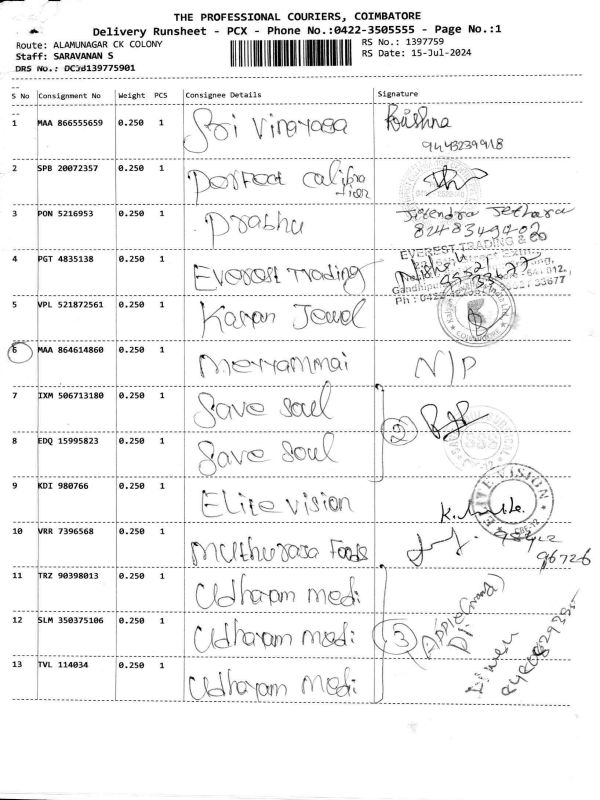 THE PROFESSIONAL COURIERS, COIMBATORE
Delivery Runsheet - PCX - Phone No.:0422-3505555 - Page No.:1
Route: ALAMUNAGAR CK COLONY
RS No.: 1397759
Staff: SARAVANAN S
RS Date: 15-Jul-2024
DRS No.:
S No Consignment No Weight PCS Consignee Details Signature
1 MAA 866555659 0.250 1 Sri Vinayaga Krishna
9443239918
2 SPB 20072357 0.250 1 Perfect calibration
3 PON 5216953 0.250 1 Prabhu Jitendra
8248349402
EVEREST TRADING & CO
4 PGT 4835138 0.250 1 Everest Trading
5 VPL 521872561 0.250 1 Karan Jewel
6 MAA 864614860 0.250 1 Meyyammai N/P
7 IXM 506713180 0.250 1 Save soul
2
8 EDQ 15995823 0.250 1 Save Soul
9 KDI 980766 0.250 1 Elite vision
ELITE VISION
10 VRR 7396568 0.250 1 Muthurasa Foods
96726
11 TRZ 90398013 0.250 1 Udhayam medi
12 SLM 350375106 0.250 1 Udhayam medi 3
13 TVL 114034 0.250 1 Udhayam Medi